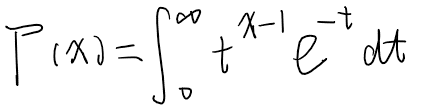 Γ(x)=∫_0^∞ t^{x-1} e^{-t} dt